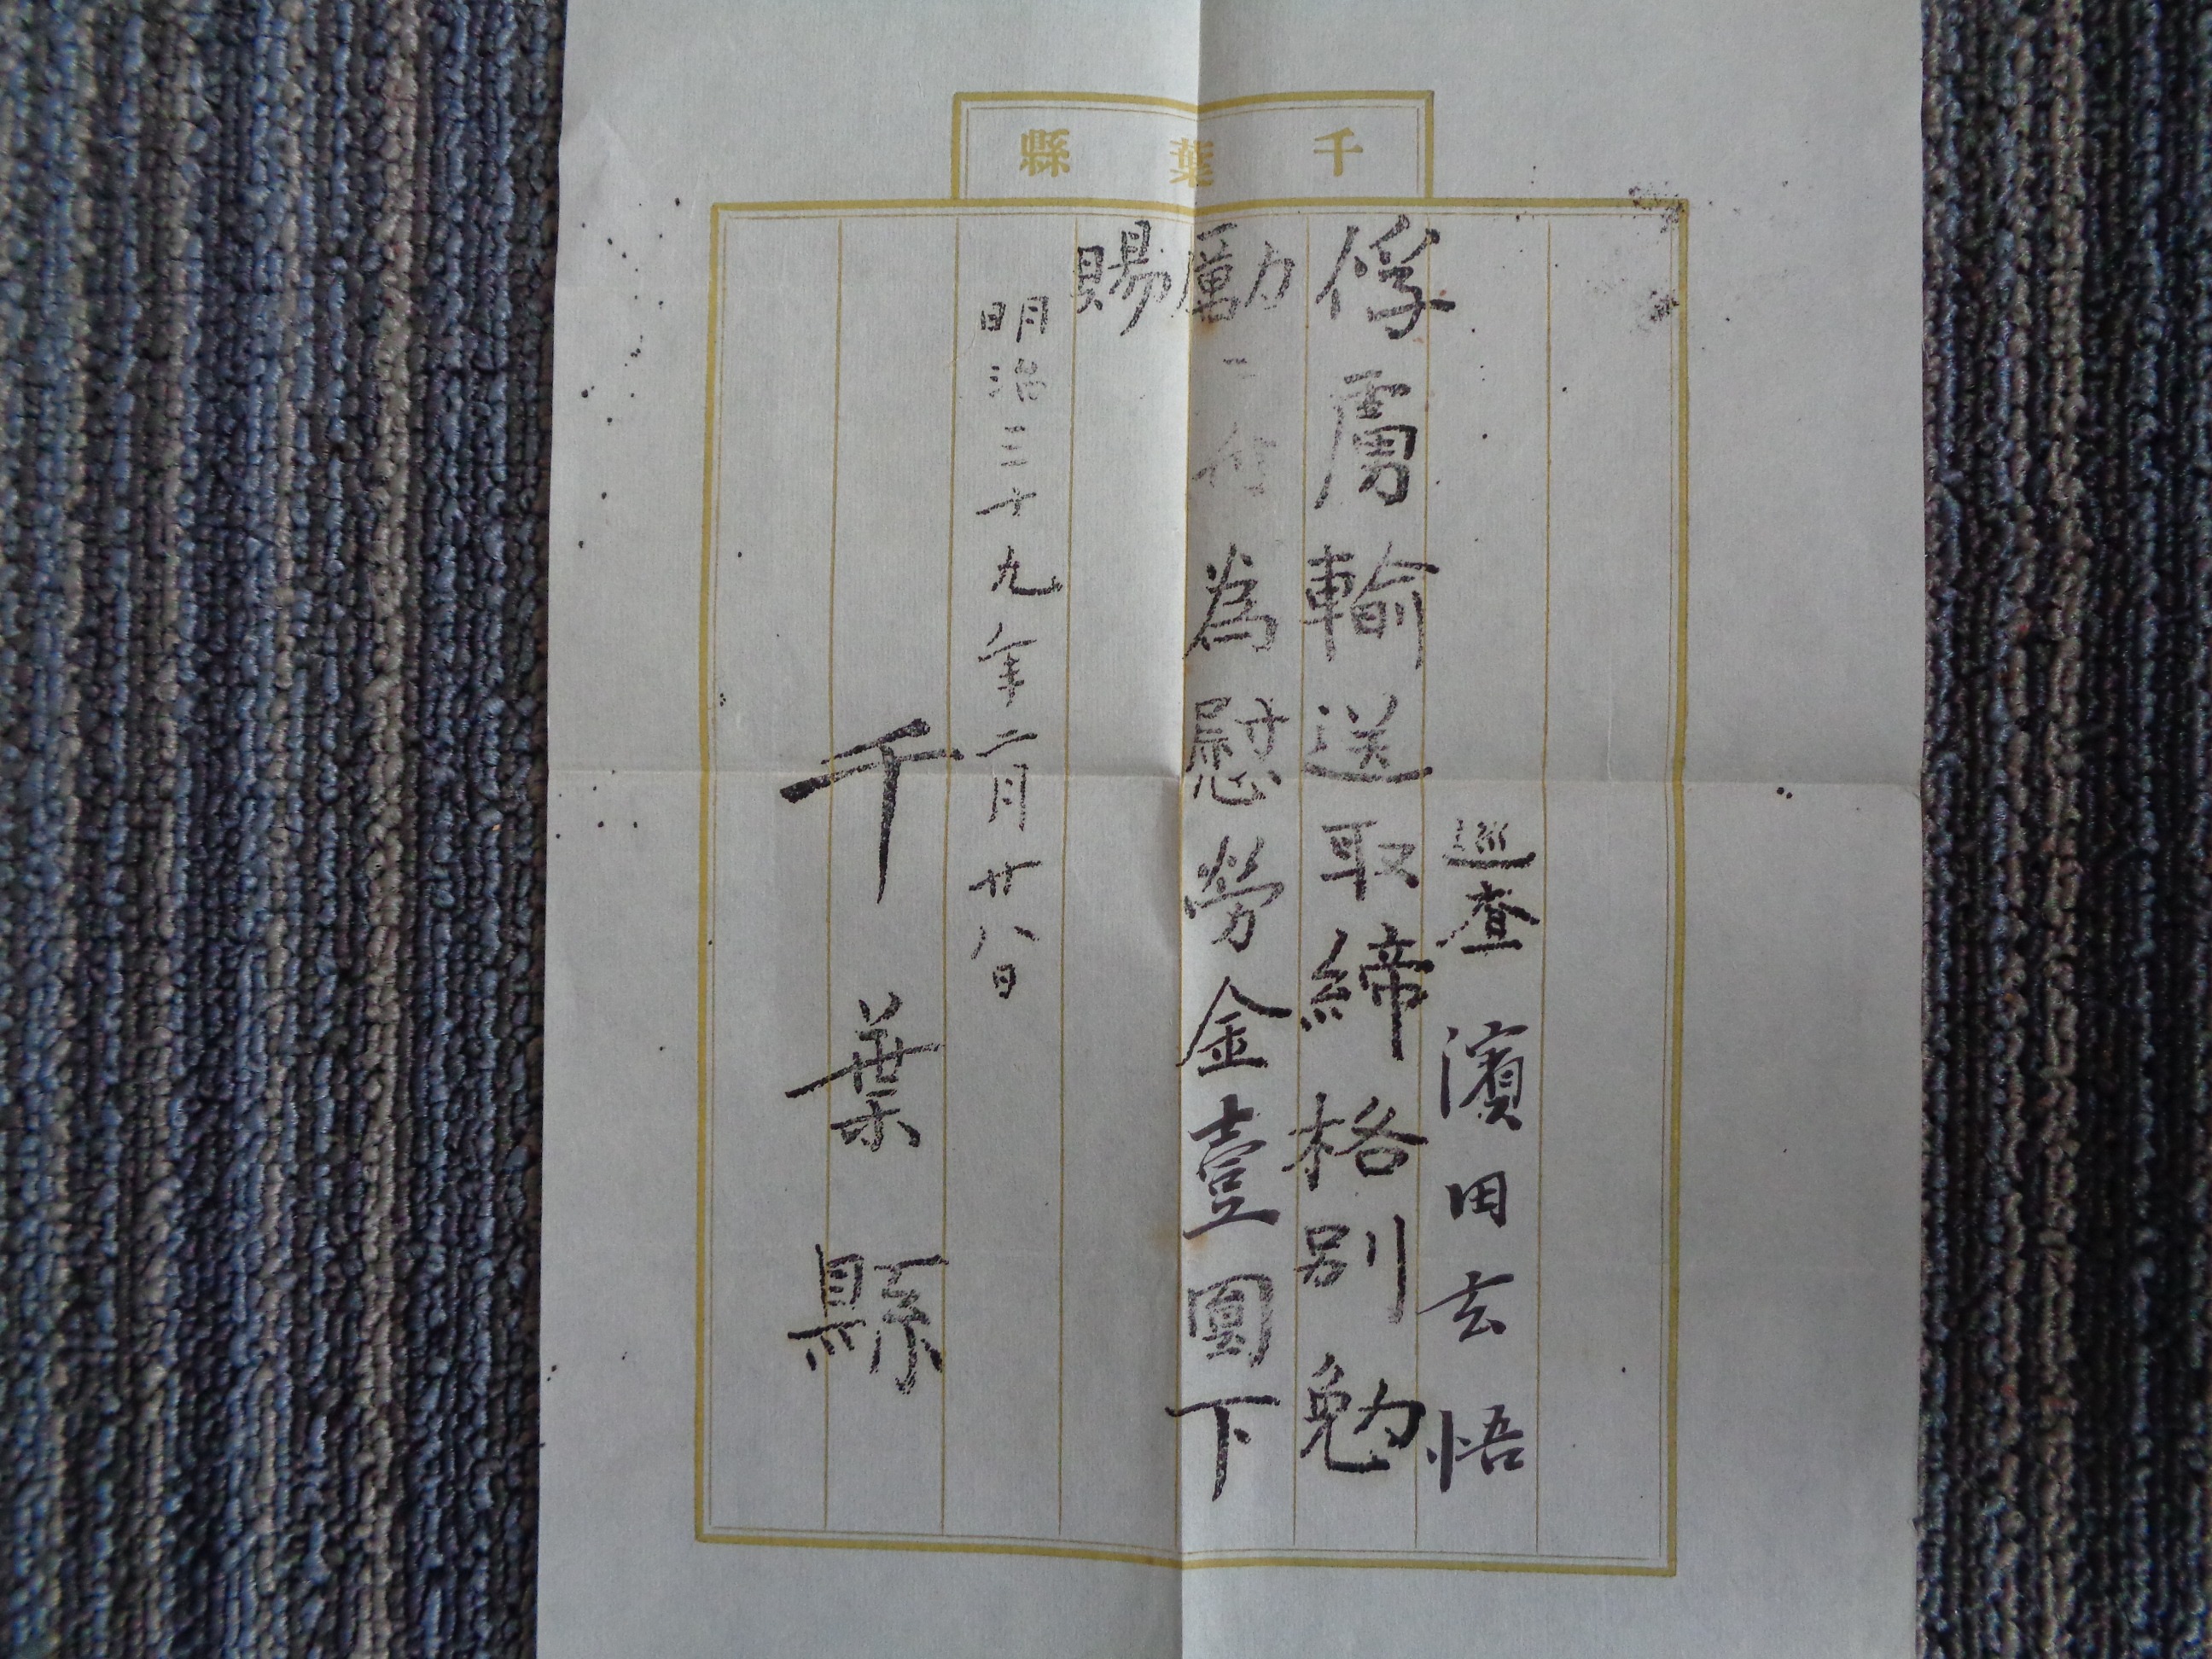 千葉縣
巡查 濱田玄悟
俘虜輸送取締格別勉
勵ニ付為慰勞金壹圓下
賜
明治三十九年二月廿八日
千葉縣